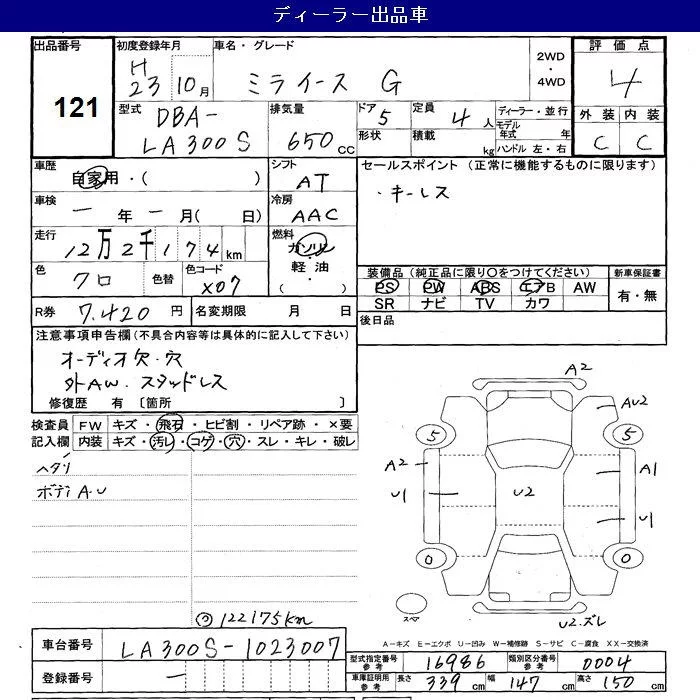 ディーラー出品車
出品番号 初度登録年月 車名・グレード 2WD ・ 4WD 評価点
121 H23 10月 ミライース G 4
型式 排気量 ドア 定員 ディーラー・並行 外装 内装
DBA-LA300S 650cc 5 4人 モデル年式 年 C C
形状 積載 kg ハンドル 左・右
車歴 自家用・( ) シフト AT セールスポイント (正常に機能するものに限ります)
車検 ー年ー月( 日) 冷房 AAC ・キーレス
走行 12万2千174km 燃料 ガソリン・軽油・( )
色 クロ 色替 色コード X07 装備品(純正品に限り○をつけてください) 新車保証書
PS PW ABS エアB AW 有・無
SR ナビ TV カワ
R券 7.420円 名変期限 月 日 後日品
注意事項申告欄(不具合内容等は具体的に記入して下さい)
オーディオ欠・穴
外AW・スタッドレス
修復歴 有 〔箇所 〕
検査員記入欄 FW キズ・飛石・ヒビ割・リペア跡・×要
内装 キズ・汚レ・コゲ・穴・スレ・キレ・破レ
ヘタリ
ボディA・U
A2
AU2
5 5
A2 A1
U1 U2 U1
0 0
スペア
U2.ズレ
122175km
A-キズ E-エクボ U-凹み W-補修跡 S-サビ C-腐食 XX-交換済
車台番号 LA300S-1023007
型式指定番号 参考 16986 類別区分番号 参考 0004
登録番号 ー
車庫証明用 参考 長さ 339cm 幅 147cm 高さ 150cm